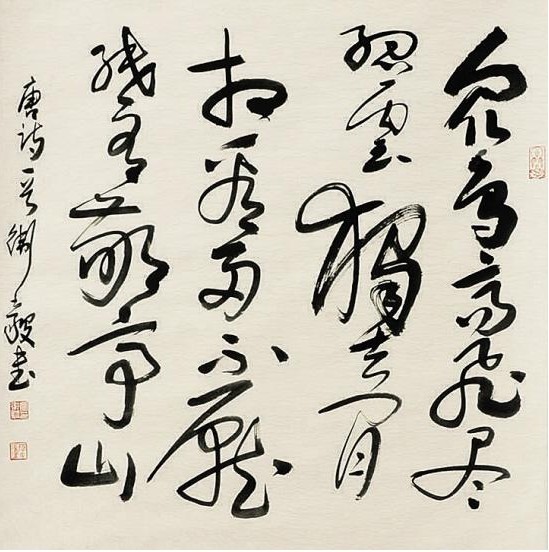 众鸟高飞尽
孤雲獨去閒
相看两不厭
只有敬亭山
唐诗一首 毅书